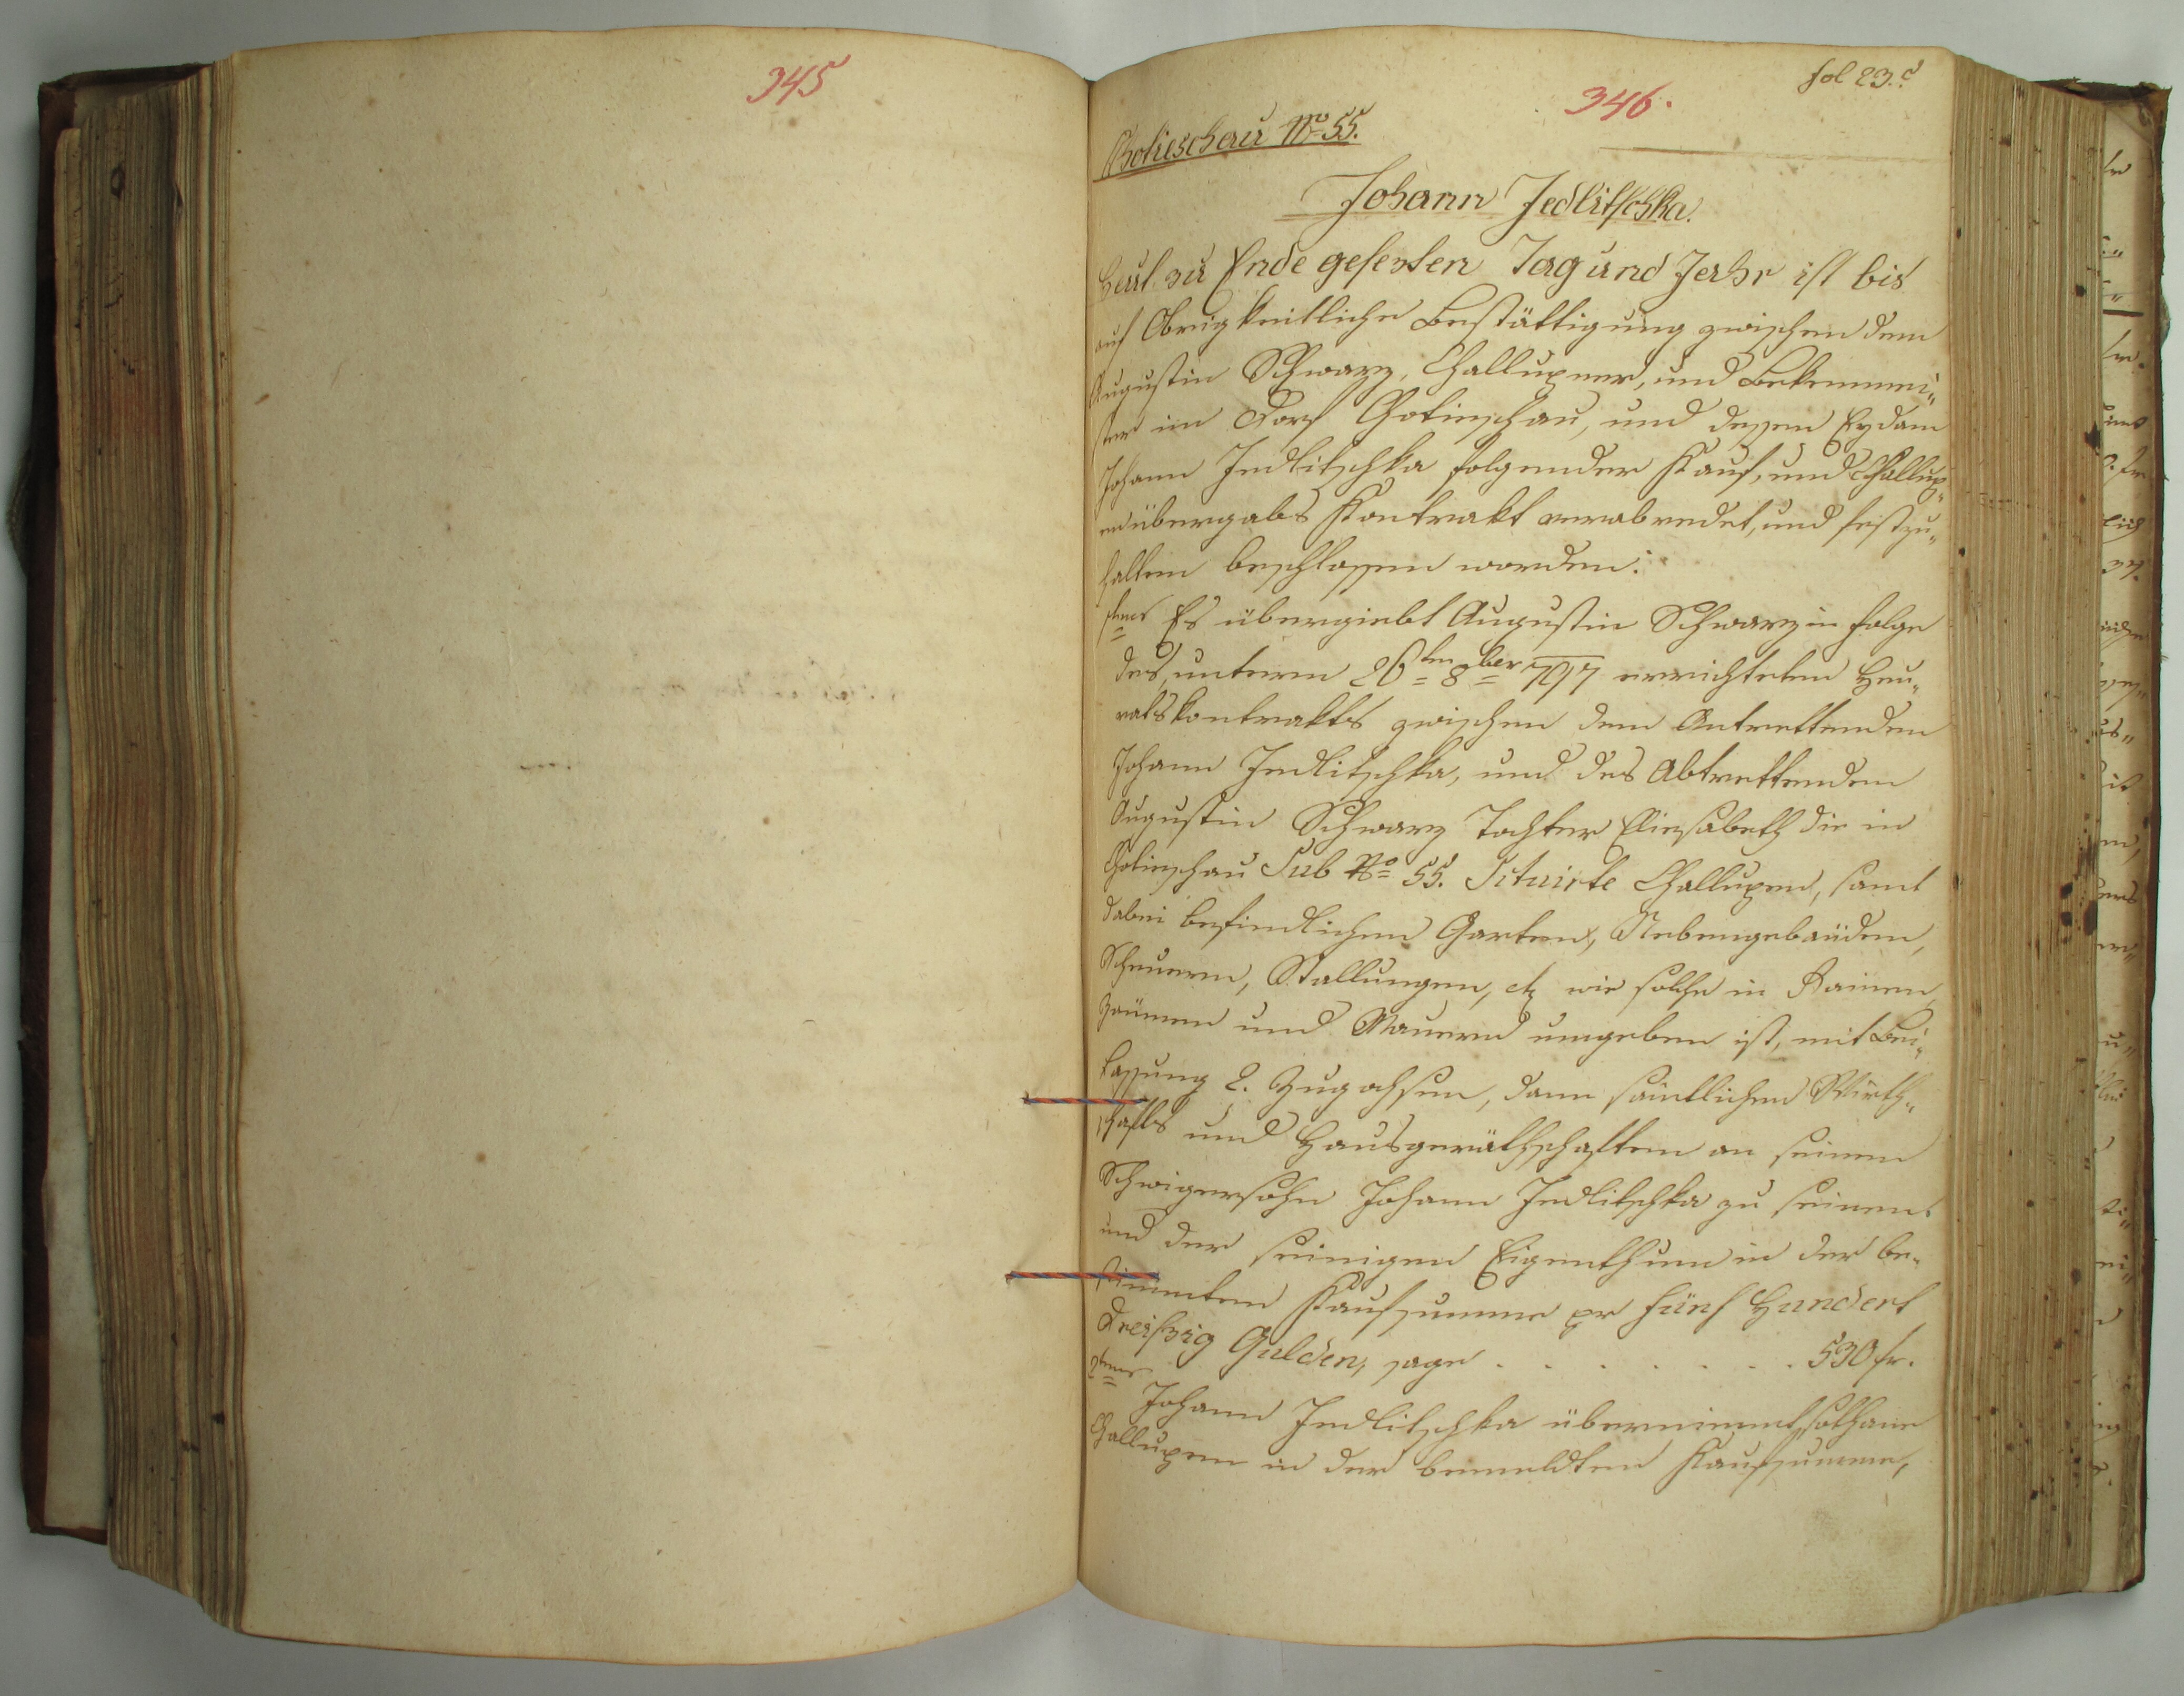 345
346.
fol 23.
Chotieschau No 55.
Johann Jedlitschka.
Heut zu Ende gesezten Tag und Jahr ist bis
auf Obrigkeitliche Bestättigung zwischen dem
Augustin Schwarz, Challupner, und
im Dorf Chotieschau, und dessen Eydam
Johann Jedlitschka folgender Kauf, und Challup„
enübergabs Kontrakt verabredet, und festzu„
halten beschlossen worden:
1stens Es übergiebt Augustin Schwarz in Folge
des, unterm 26ten 8ber 797 errichteten Heu„
ratskontrakts zwischen dem Antrettenden
Johann Jedlitschka, und des Abtrettenden
Augustin Schwarz Tochter Eliesabeth die in
Chotieschau Sub No 55. Situirte Challupen, samt
dabei befindlichen Garten, Nebengebäuden,
Scheuern, Stallungen, etz wie solche in Rainen
Zäunen und Mauern umgeben ist, mit Bei„
lassung 2. Zugochsen, dann sämtlichen Wirth„
schafts und Hausgeräthschaften an seinen
Schwigersohn Johann Jedlitschka zu seinem
und der seinigen Eigenthum in der be„
stimmten Kaufsumme pr Fünf Hundert
Dreißzig Gulden, sage . . . . . . . 530 fr.
2tens Johann Jedlitschka übernimmt sothane
Challupen in der bemeldten Kaufsumme,